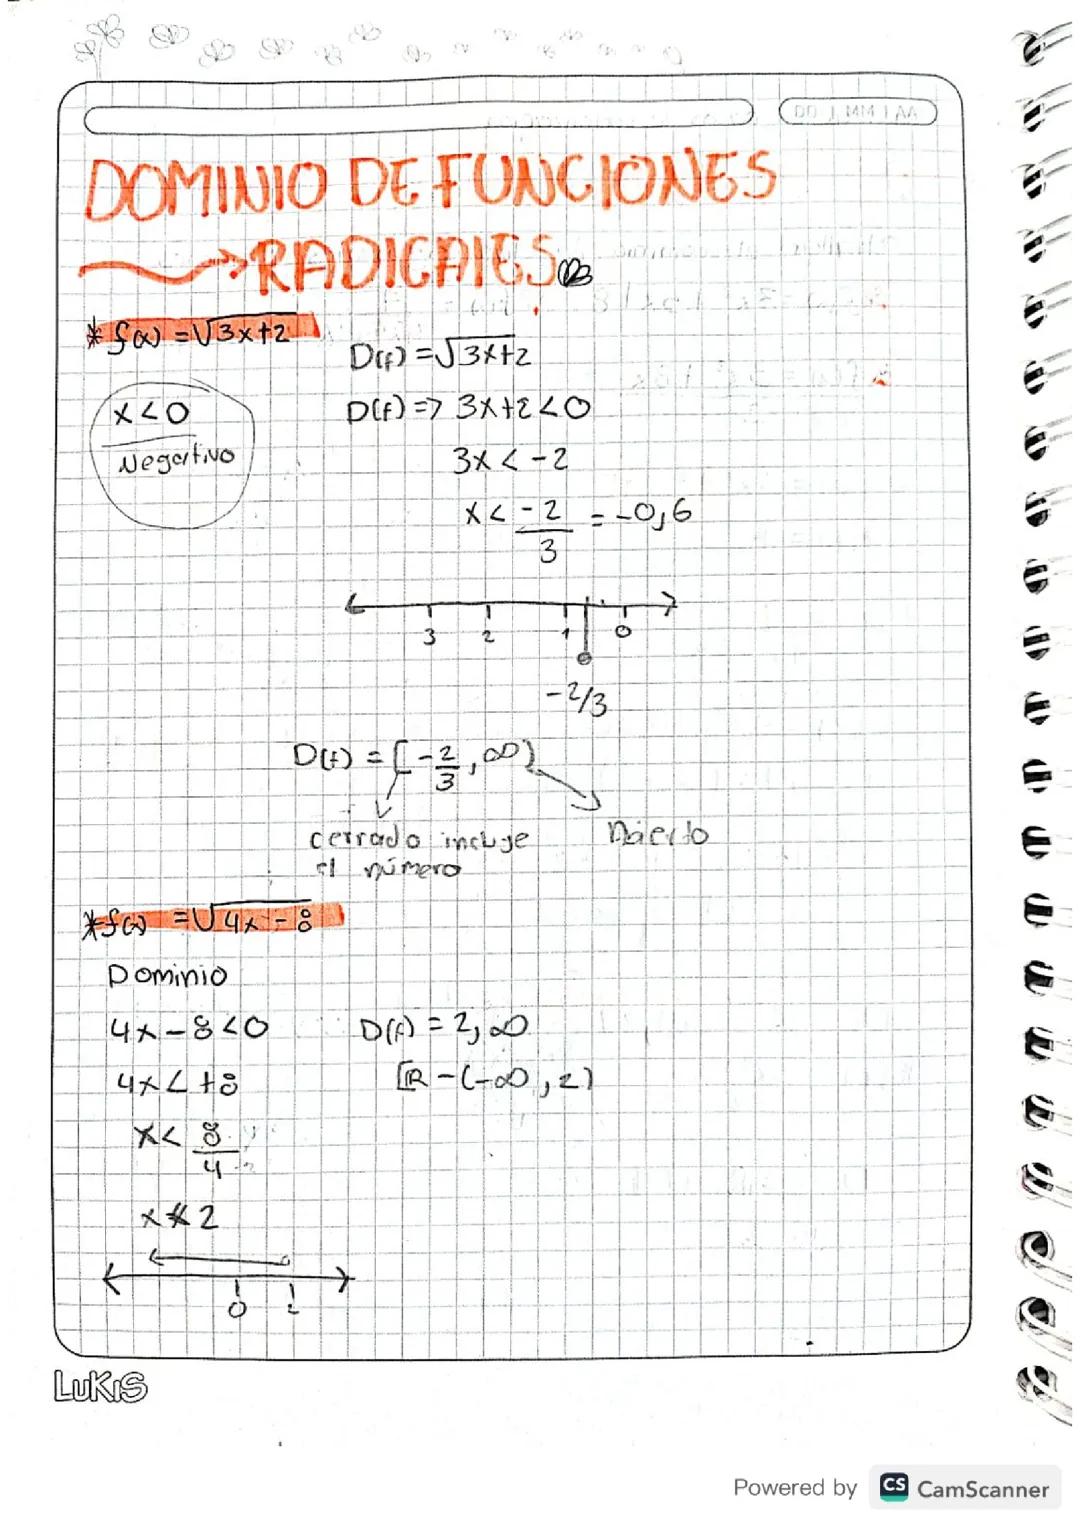 AA | MM | DD
DOMINIO DE FUNCIONES
RADICALES
* f(x) = √3x+2
D(f) = √3x+2
x < 0
Negativo
D(f) => 3x+2 < 0
3x < -2
x < -2/3 = -0,6
3 2 1 0
-2/3
D(f) = [-2/3, ∞)
cerrado incluye
el número
Abierto
* f(x) = √4x-8
Dominio
4x - 8 < 0
D(f) = 2, ∞
4x < +8
[R - (-∞, 2)
x < 8/4
x < 2
0 2
LUKIS
Powered by CS CamScanner